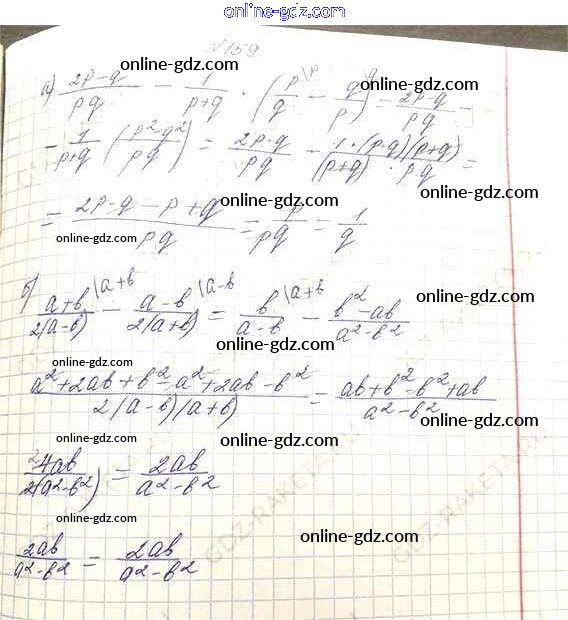 www.online-gdz.com
№159
online-gdz.com
а) (2p-q)/(pq) - 1/(p+q) · (p/q \p - q/p \q) = (2p-q)/(pq) -
online-gdz.com online-gdz.com
- 1/(p+q) · ((p²-q²)/(pq)) = (2p-q)/(pq) - (1·(p-q)(p+q))/((p+q)·pq) =
online-gdz.com
= (2p-q-p+q)/(pq) = p/(pq) = 1/q
online-gdz.com online-gdz.com
online-gdz.com
б) (a+b)/(2(a-b)) \a+b - (a-b)/(2(a+b)) \a-b = b/(a-b) \a+b - (b²-ab)/(a²-b²)
online-gdz.com
online-gdz.com online-gdz.com
(a²+2ab+b²-a²+2ab-b²)/(2(a-b)(a+b)) = (ab+b²-b²+ab)/(a²-b²)
online-gdz.com online-gdz.com
4ab/(2(a²-b²)) = 2ab/(a²-b²)
GDZ-RAKETA
online-gdz.com online-gdz.com
2ab/(a²-b²) = 2ab/(a²-b²)